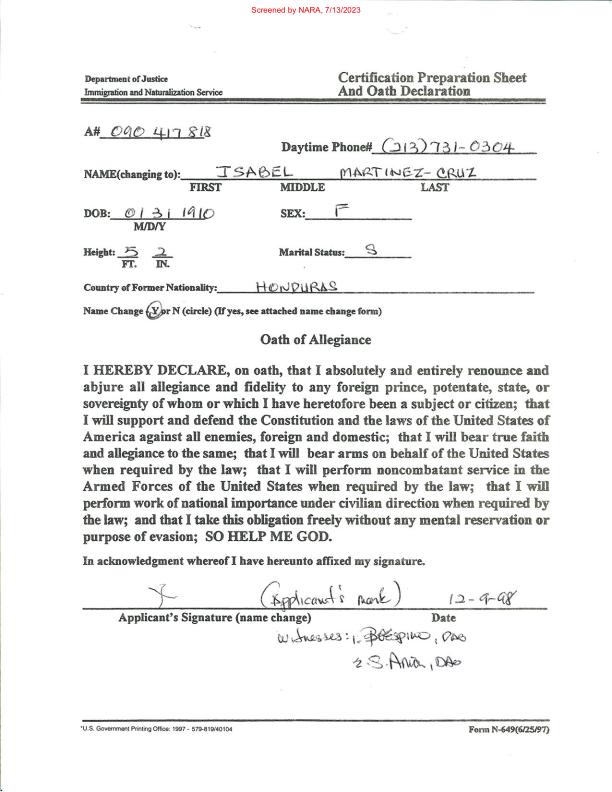 Screened by NARA, 7/13/2023
Department of Justice
Immigration and Naturalization Service
Certification Preparation Sheet
And Oath Declaration
A# 090 417 818
Daytime Phone# (213) 731-0304
NAME(changing to): ISABEL MARTINEZ-CRUZ
FIRST MIDDLE LAST
DOB: 01 31 1910 SEX: F
M/D/Y
Height: 5 2 Marital Status: S
FT. IN.
Country of Former Nationality: HONDURAS
Name Change (Y) or N (circle) (If yes, see attached name change form)
Oath of Allegiance
I HEREBY DECLARE, on oath, that I absolutely and entirely renounce and
abjure all allegiance and fidelity to any foreign prince, potentate, state, or
sovereignty of whom or which I have heretofore been a subject or citizen; that
I will support and defend the Constitution and the laws of the United States of
America against all enemies, foreign and domestic; that I will bear true faith
and allegiance to the same; that I will bear arms on behalf of the United States
when required by the law; that I will perform noncombatant service in the
Armed Forces of the United States when required by the law; that I will
perform work of national importance under civilian direction when required by
the law; and that I take this obligation freely without any mental reservation or
purpose of evasion; SO HELP ME GOD.
In acknowledgment whereof I have hereunto affixed my signature.
X (Applicant's mark) 12-9-98
Applicant's Signature (name change) Date
Witnesses: 1. DAO
2. S. DAO
*U.S. Government Printing Office: 1997 - 579-819/40104
Form N-649(6/25/97)